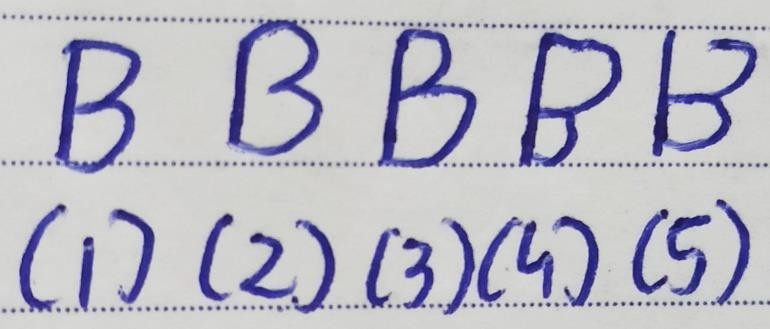 B B B B B
(1) (2) (3) (4) (5)